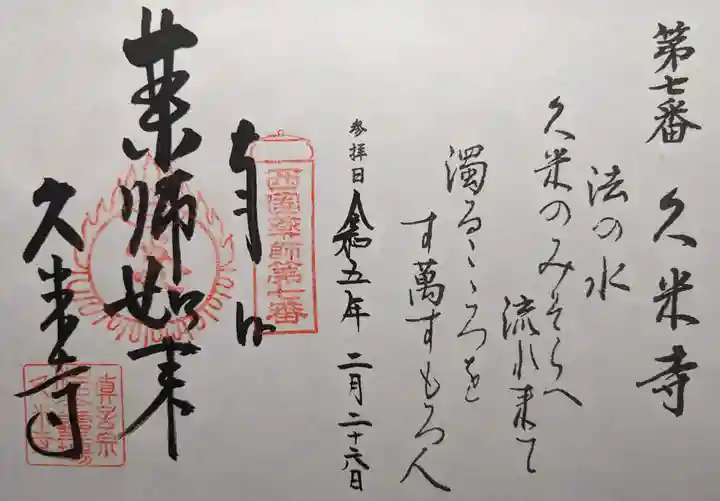 第七番 久米寺
法の水
久米のみそらへ
流れ来て
濁るゝこゝろを
す萬すもろ人
参拝日 令和五年 二月二十六日
西国薬師第七番
奉拝
薬師如来
久米寺
真言宗
久米寺